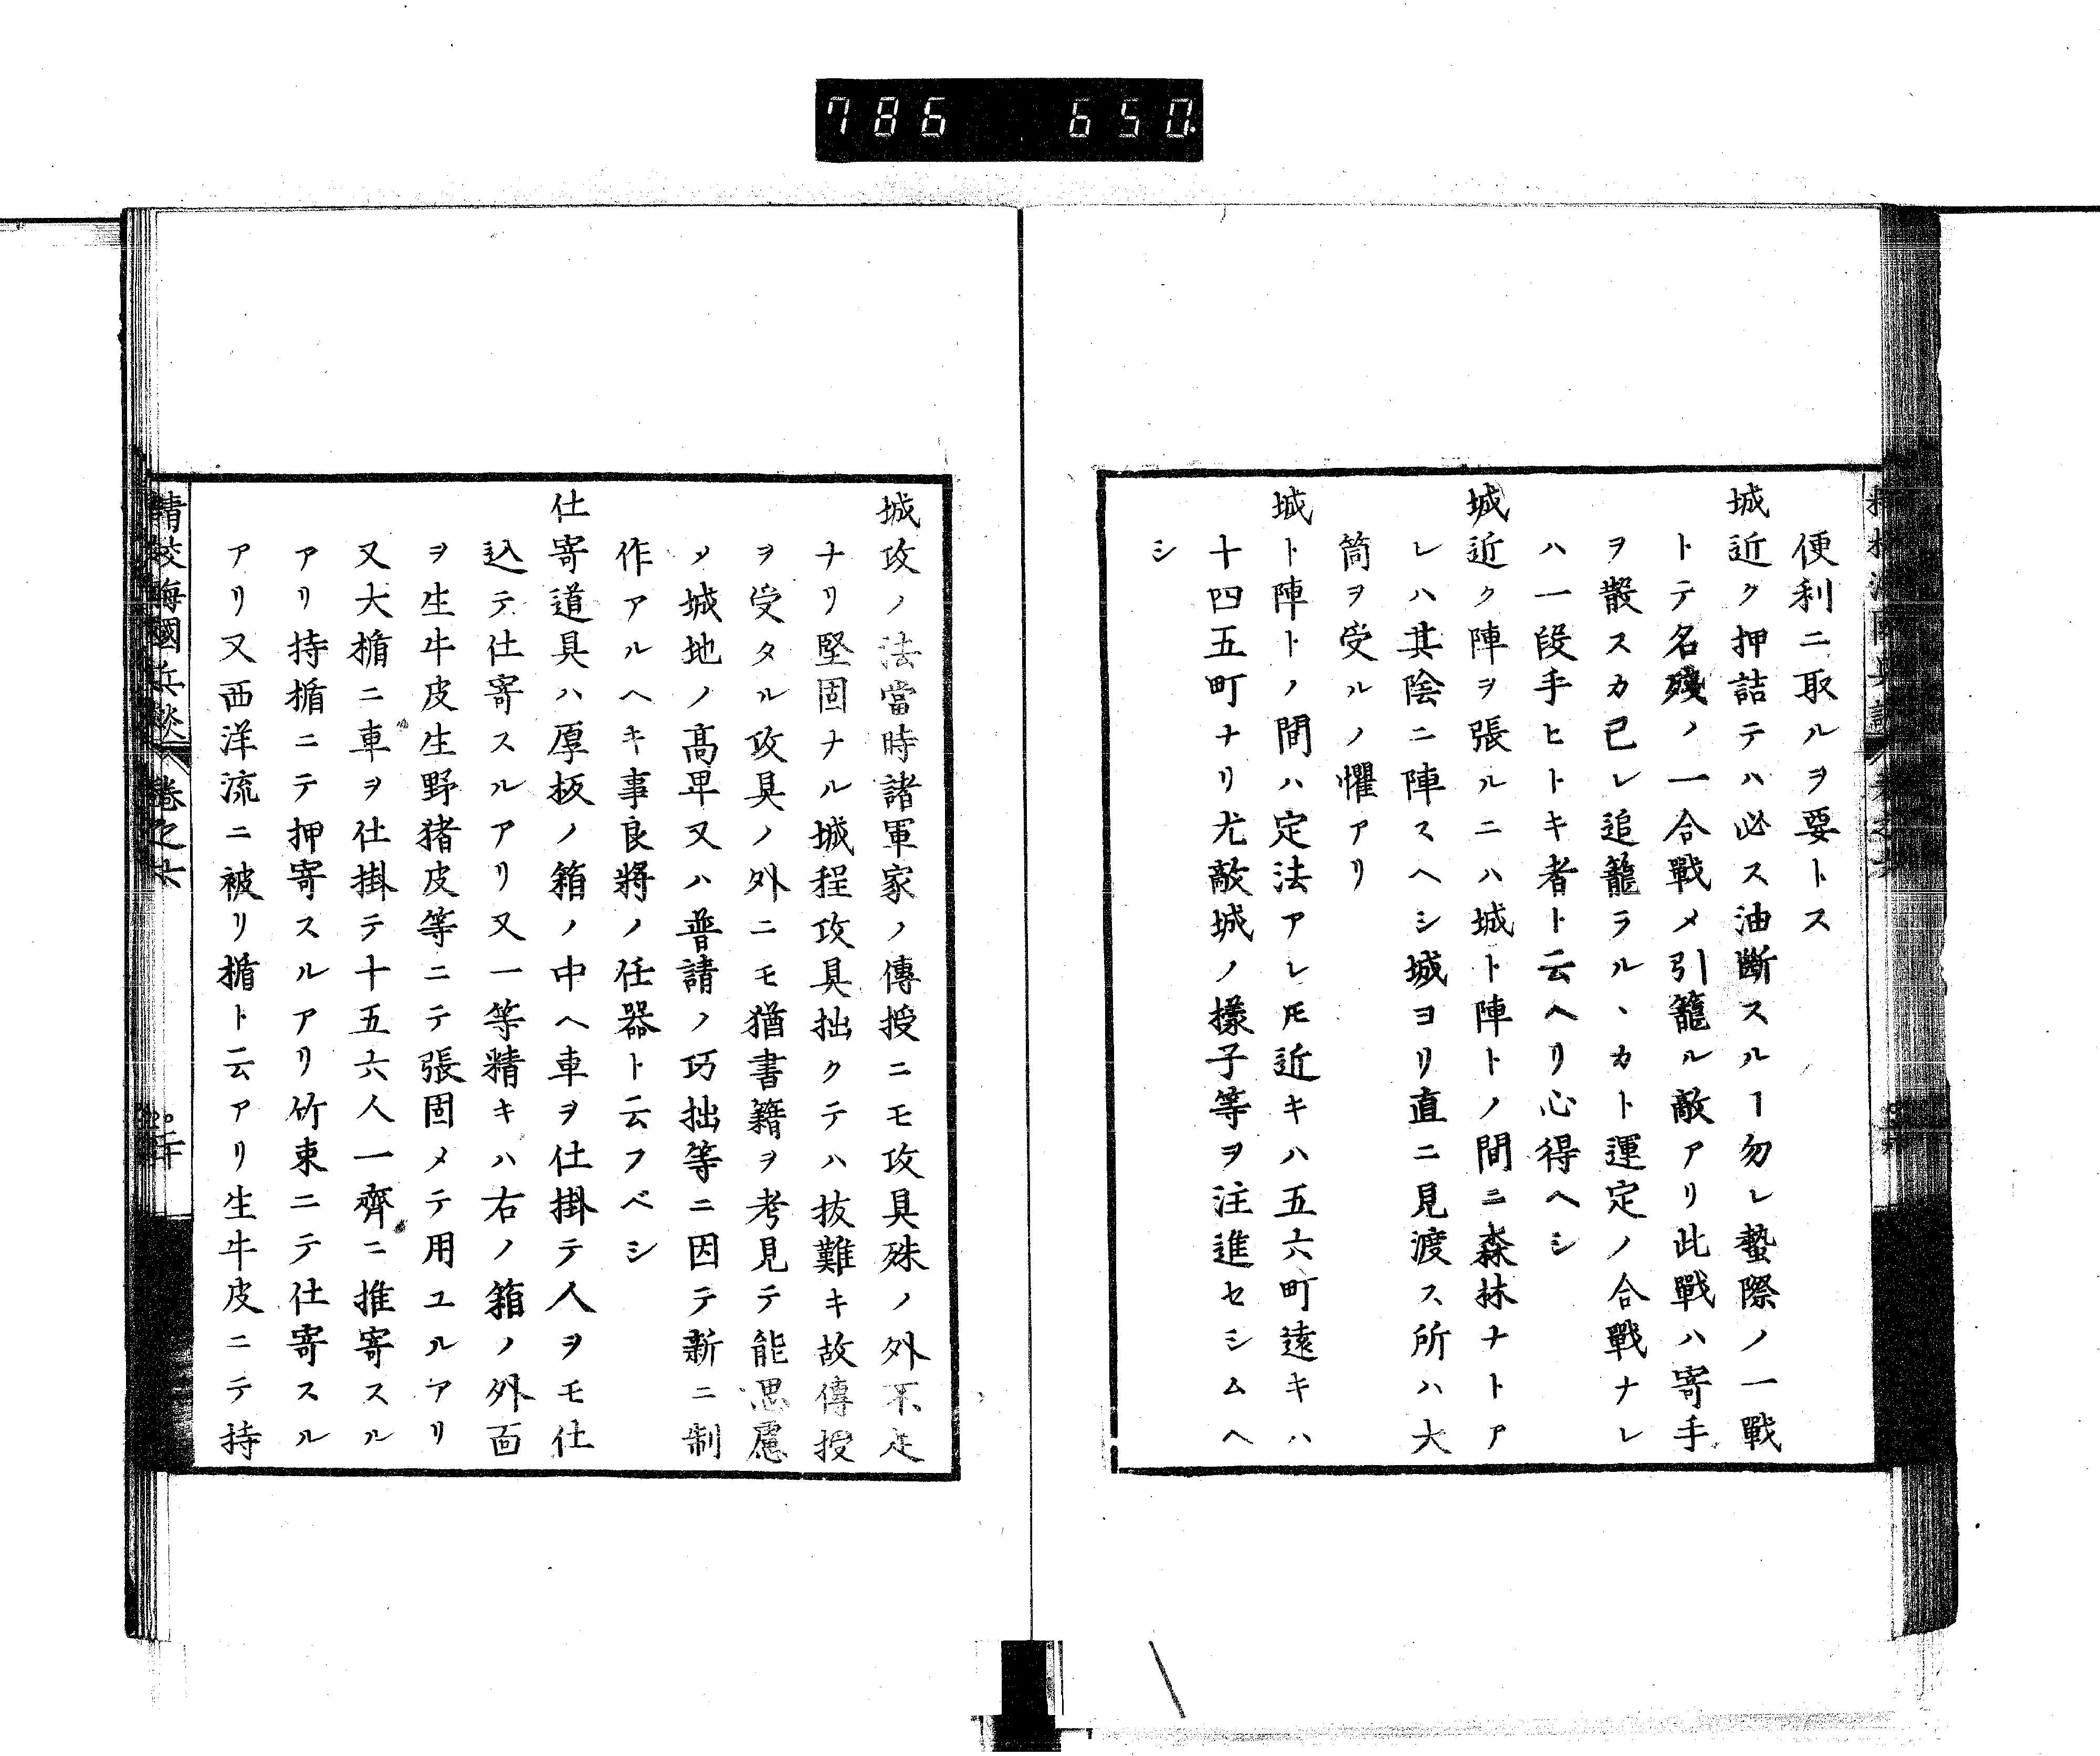 786 650
便利ニ取ルヲ要トス
城近ク押詰テハ必ス油断スルヿ勿レ蟄際ノ一戰
トテ名殘ノ一合戰メ引籠ル敵アリ此戰ハ寄手
ヲ散スカ已レ追籠ラル丶カト運定ノ合戰ナレ
ハ一段手ヒトキ者ト云ヘリ心得ヘシ
城近ク陣ヲ張ルニハ城ト陣トノ間ニ森林ナトア
レハ其陰ニ陣スヘシ城ヨリ直ニ見渡ス所ハ大
筒ヲ受ルノ懼アリ
城ト陣トノ間ハ定法アレ𪜈近キハ五六町遠キハ
十四五町ナリ尤敵城ノ様子等ヲ注進セシムヘ
シ
城攻ノ法當時諸軍家ノ傳授ニモ攻具殊ノ外不足
ナリ堅固ナル城程攻具拙クテハ抜難キ故傳授
ヲ受タル攻具ノ外ニモ猶書籍ヲ考見テ能思慮
メ城地ノ髙卑又ハ普請ノ巧拙等ニ因テ新ニ制
作アルヘキ事良將ノ任器ト云フベシ
仕寄道具ハ厚板ノ箱ノ中ヘ車ヲ仕掛テ人ヲモ仕
込テ仕寄スルアリ又一等精キハ右ノ箱ノ外面
ヲ生牛皮生野猪皮等ニテ張固メテ用ユルアリ
又大楯ニ車ヲ仕掛テ十五六人一齊ニ推寄スル
アリ持楯ニテ押寄スルアリ竹束ニテ仕寄スル
アリ又西洋流ニ被リ楯ト云アリ生牛皮ニテ持
精校海國兵談 卷之六